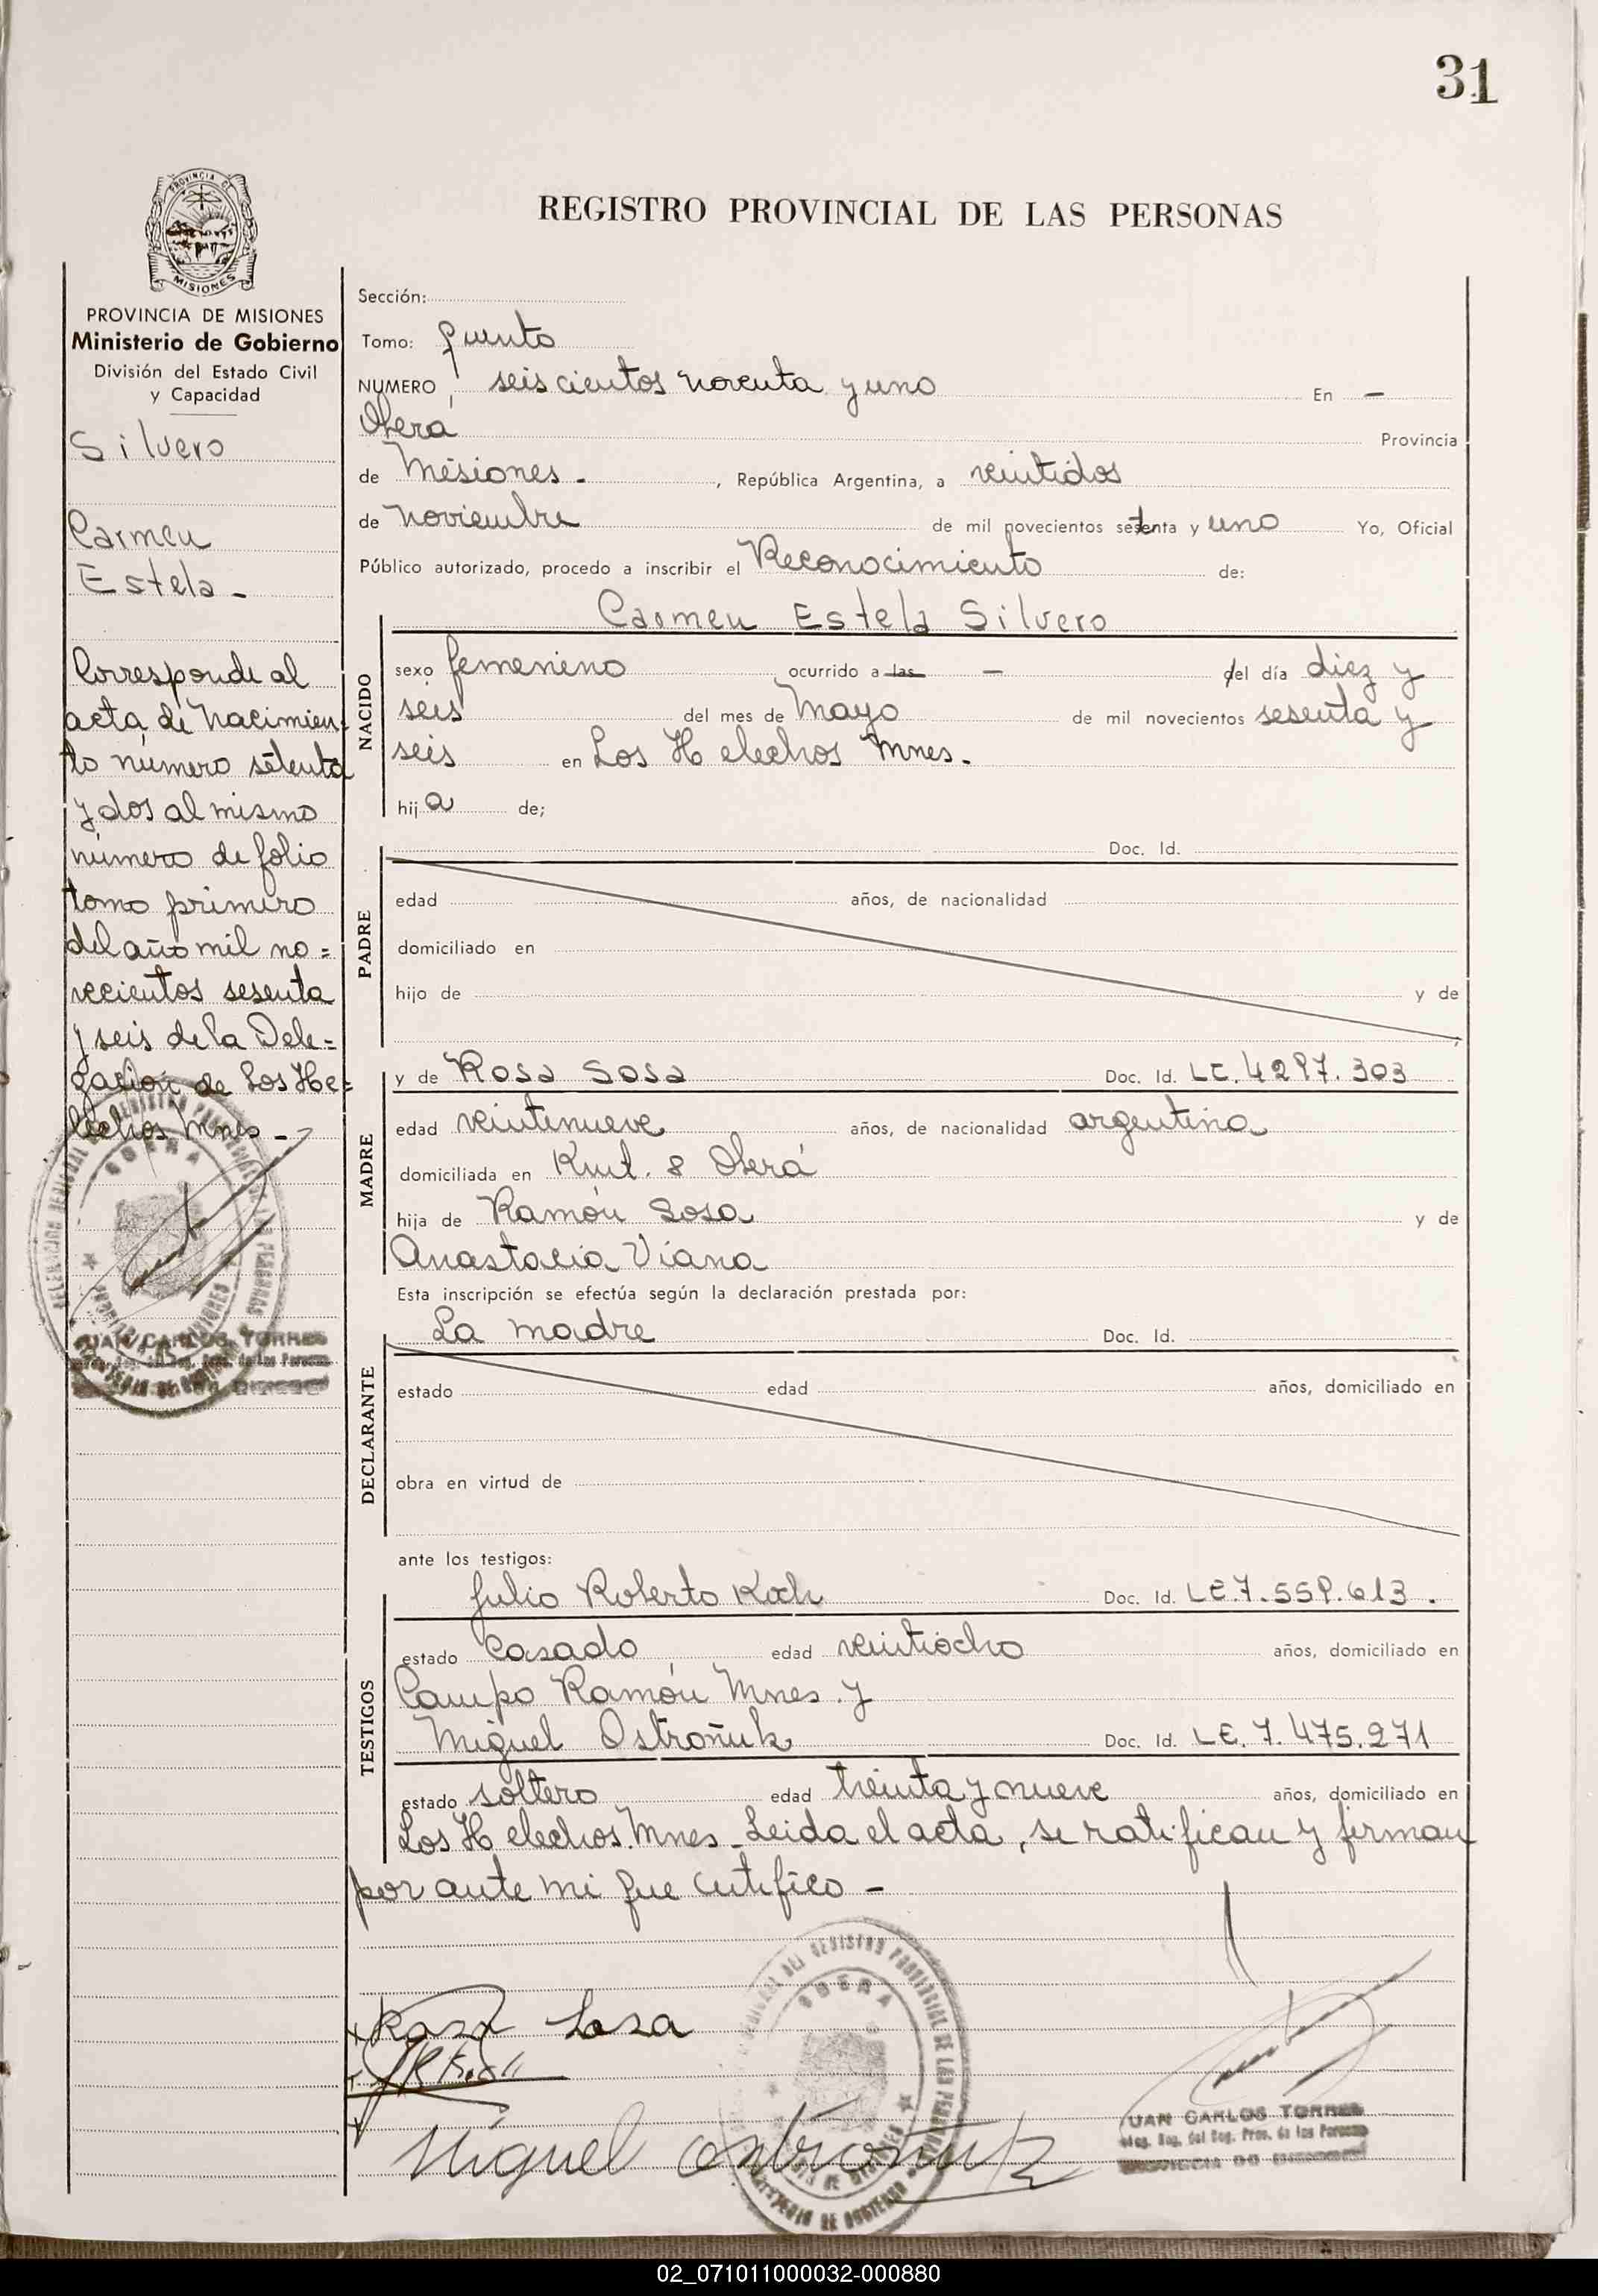 31
PROVINCIA DE
MISIONES
REGISTRO PROVINCIAL DE LAS PERSONAS
PROVINCIA DE MISIONES
Ministerio de Gobierno
División del Estado Civil
y Capacidad
Silvero
Carmen
Estela -
Corresponde al
acta de nacimien-
to número setenta
y dos al mismo
número de folio
tomo primero
del año mil no=
vecientos sesenta
y seis de la Dele=
gación de Los He=
lechos Mnes -
OBERA
JUAN CARLOS TORRES
Sección:
Tomo: quinto
NUMERO, seiscientos noventa y uno En -
Oberá Provincia
de Misiones - , República Argentina, a veintidos
de noviembre de mil novecientos setenta y uno Yo, Oficial
Público autorizado, procedo a inscribir el Reconocimiento de:
Carmen Estela Silvero
NACIDO
sexo femenino ocurrido a las - del día diez y
seis del mes de Mayo de mil novecientos sesenta y
seis en Los Helechos Mnes.
hija de;
PADRE
Doc. Id.
edad años, de nacionalidad
domiciliado en
hijo de y de
MADRE
y de Rosa Sosa Doc. Id. LC. 4297.303
edad veintenueve años, de nacionalidad argentina
domiciliada en Kmt. 8 Oberá
hija de Ramón Sosa y de
Anastacia Viana
Esta inscripción se efectúa según la declaración prestada por:
DECLARANTE
La madre Doc. Id.
estado edad años, domiciliado en
obra en virtud de
ante los testigos:
TESTIGOS
Julio Roberto Koch Doc. Id. LE.7.559.613.
estado casado edad veintiocho años, domiciliado en
Campo Ramón Mnes. y
Miguel Ostroñuk Doc. Id. LE. 7.475.271
estado soltero edad treinta y nueve años, domiciliado en
Los Helechos Mnes - Leida el acta, se ratifican y firman
por ante mi que certifico -
Rosa Sosa
Miguel Ostroñuk
OBERA
JUAN CARLOS TORRES
02_071011000032-000880